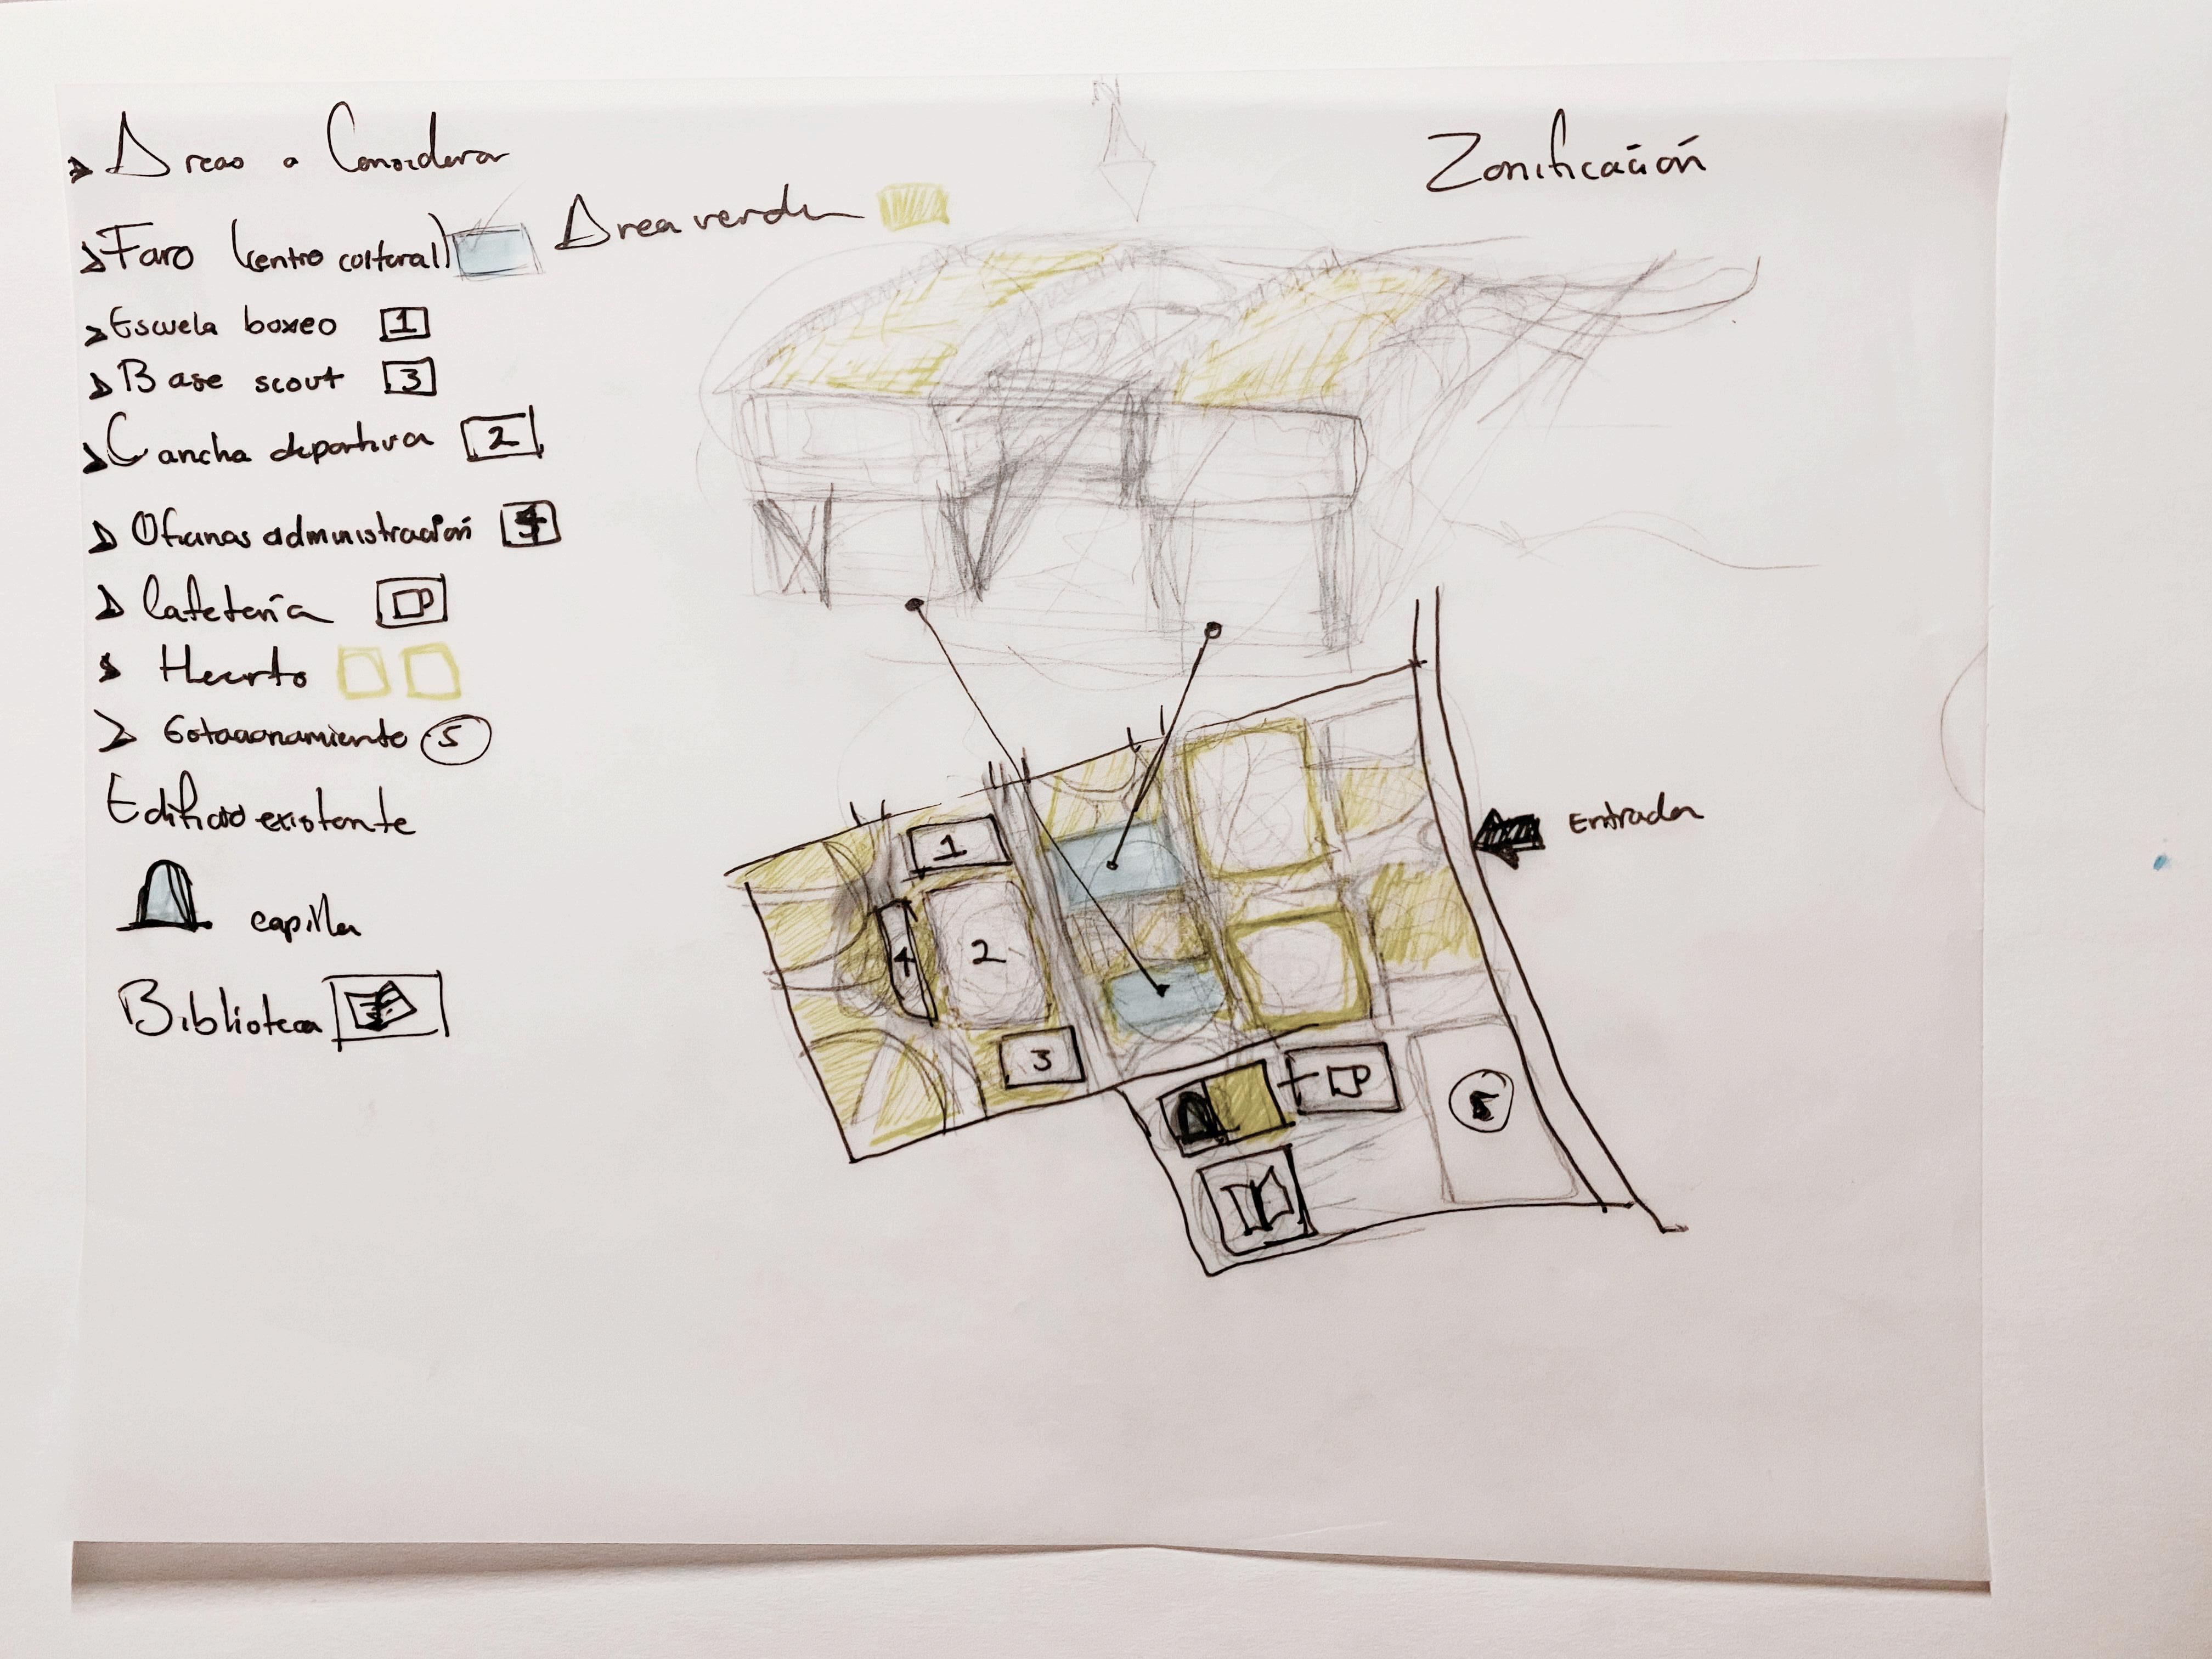 Areas a Considerar
Zonificación
Faro (centro cultural)
Area verde
Escuela boxeo 1
Base scout 3
Cancha deportiva 2
Oficinas administración 4
Cafetería
Huerto
Estacionamiento 5
Edificio existente
capilla
Biblioteca
N
Entrada
1
4
2
3
5